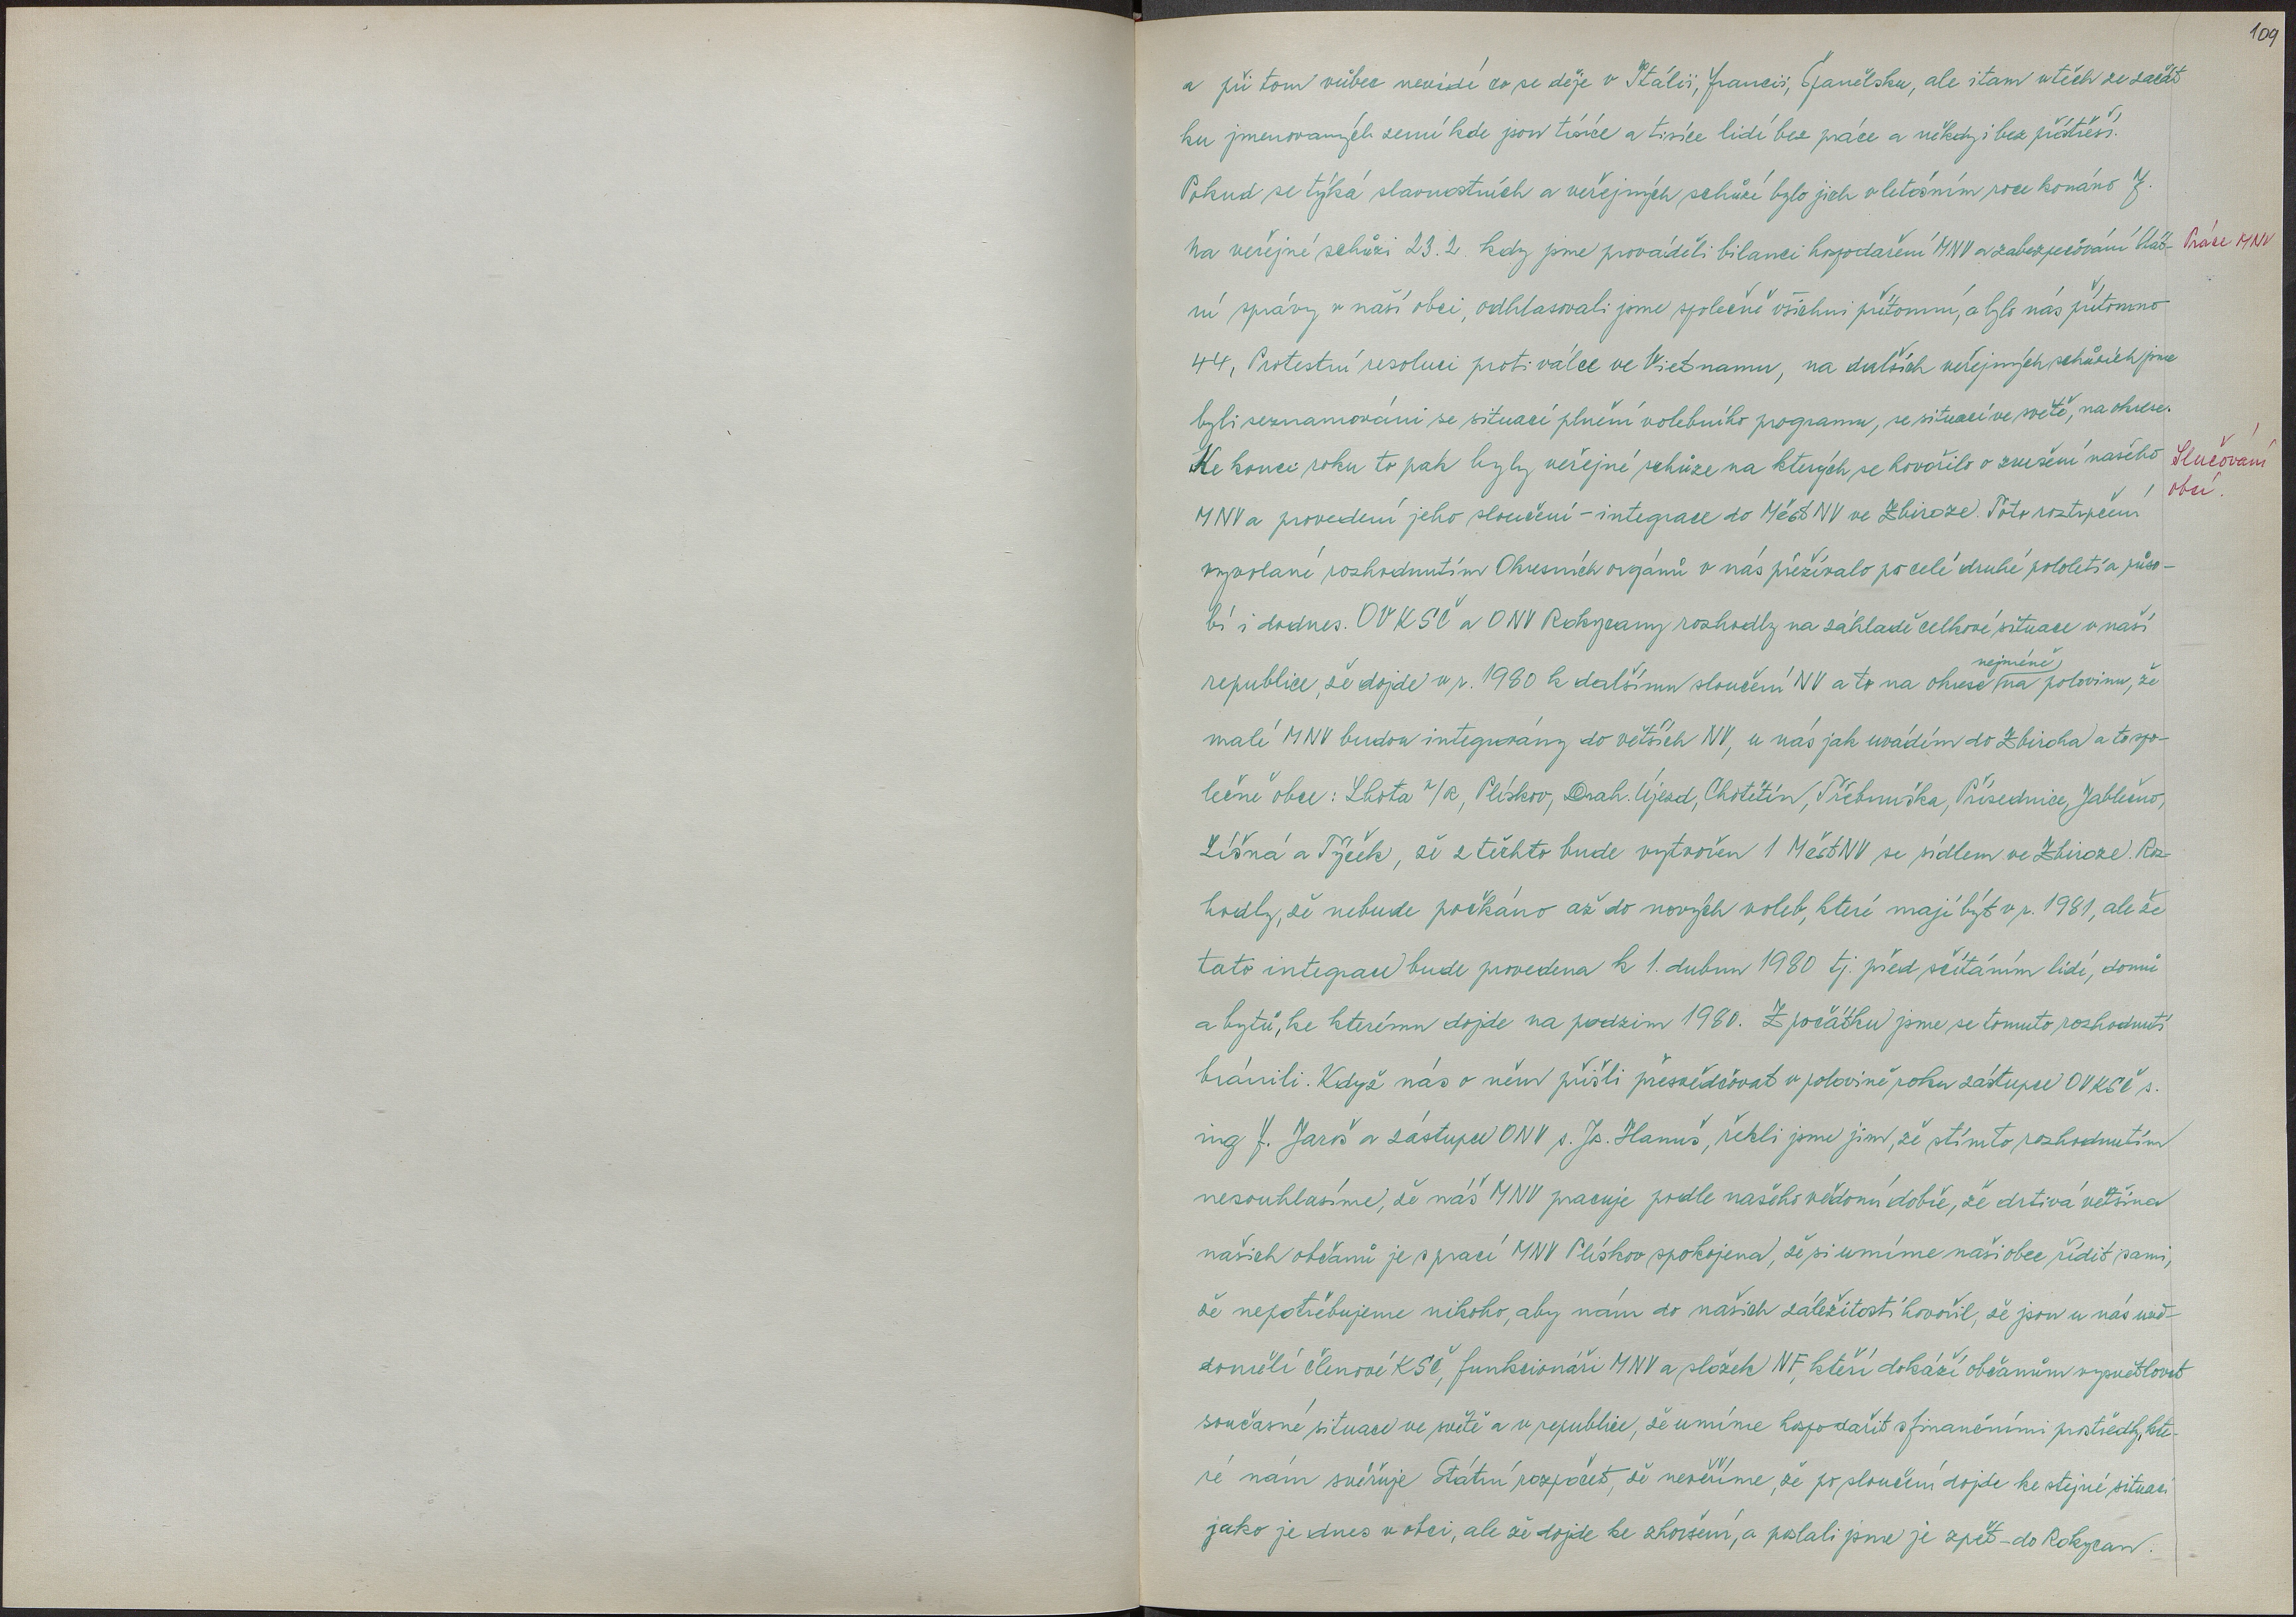 109
a při tom vůbec nevidí co se děje v Itálii, Francii, Španělsku, ale i tam v těch ze začát
ku jmenovaných zemí kde jsou tisíce a tisíce lidí bez práce a někdy i bez přístřeší.
Pokud se týká slavnostních a veřejných schůzí bylo jich v letošním roce konáno 7.
Na veřejné schůzi 23.2 kdy jsme prováděli bilanci hospodaření MNV a zabezpečování Stát-
Práce MNV
ní správy v naší obci, odhlasovali jsme společně všichni přítomní, a bylo nás přítomno
44, Protestní resoluci proti válce ve Vietnamu, na dalších veřejných schůzích jsme
byli seznamováni se situací plnění volebního programu, se situací ve světě, na okrese.
Ke konci roku to pak byly veřejné schůze na kterých se hovořilo o zrušení našeho
Slučování
obcí.
MNV a provedení jeho sloučení - integrace do MěstNV ve Zbiroze. Toto roztrpčení
vyvolané rozhodnutím Okresních orgánů v nás přežívalo po celé druhé pololetí a půso-
bí i dodnes. OV KSČ a ONV Rokycany rozhodly na základě celkové situace v naší
republice, že dojde v r. 1980 k dalšímu sloučení NV a to na okrese nejméně na polovinu, že
malé MNV budou integrovány do větších NV, u nás jak uvádím do Zbiroha a to spo-
lečně obce: Lhota p/R, Plískov, Drah. Újezd, Chotětín, Třebnuška, Přísednice, Jablečno,
Líšná a Týček, že z těchto bude vytvořen 1 MěstNV se sídlem ve Zbiroze. Roz-
hodly, že nebude počkáno až do nových voleb, které mají být v r. 1981, ale že
tato integrace bude provedena k 1. dubnu 1980 tj. před sčítáním lidí, domů
a bytů, ke kterému dojde na podzim 1980. Z počátku jsme se tomuto rozhodnutí
bránili. Když nás o něm přišli přesvědčovat v polovině roku zástupce OV KSČ s.
ing F. Jaroš a zástupce ONV s. Js. Hanuš, řekli jsme jim, že s tímto rozhodnutím
nesouhlasíme, že náš MNV pracuje podle našeho vědomí dobře, že drtivá většina
našich občanů je s prací MNV Plískov spokojena, že si umíme naši obec řídit sami,
že nepotřebujeme nikoho, aby nám do našich záležitostí hovořil, že jsou u nás uvě-
domělí členové KSČ, funkcionáři MNV a složek NF, kteří dokáží občanům vysvětlovat
současné situace ve světě a v republice, že umíme hospodařit s finančními prostředky, kte-
ré nám svěřuje Státní rozpočet, že nevěříme, že po sloučení dojde ke stejné situaci
jako je dnes v obci, ale že dojde ke zhoršení, a poslali jsme je zpět - do Rokycan.